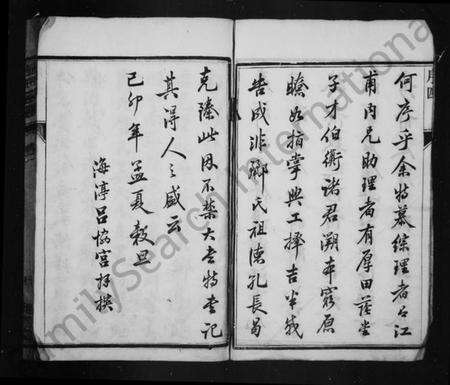 何序乎余特慕綜理者之江
甫內兄助理者有厚田蓮堂
子才伯衡諸君溯本窮原
瞭如指掌興工擇吉半載
告成非鄒氏祖德孔長曷
克臻此因不禁大書特書記
其得人之盛云
己卯年孟夏穀旦
海淳呂協宮拜撰
FamilySearch International